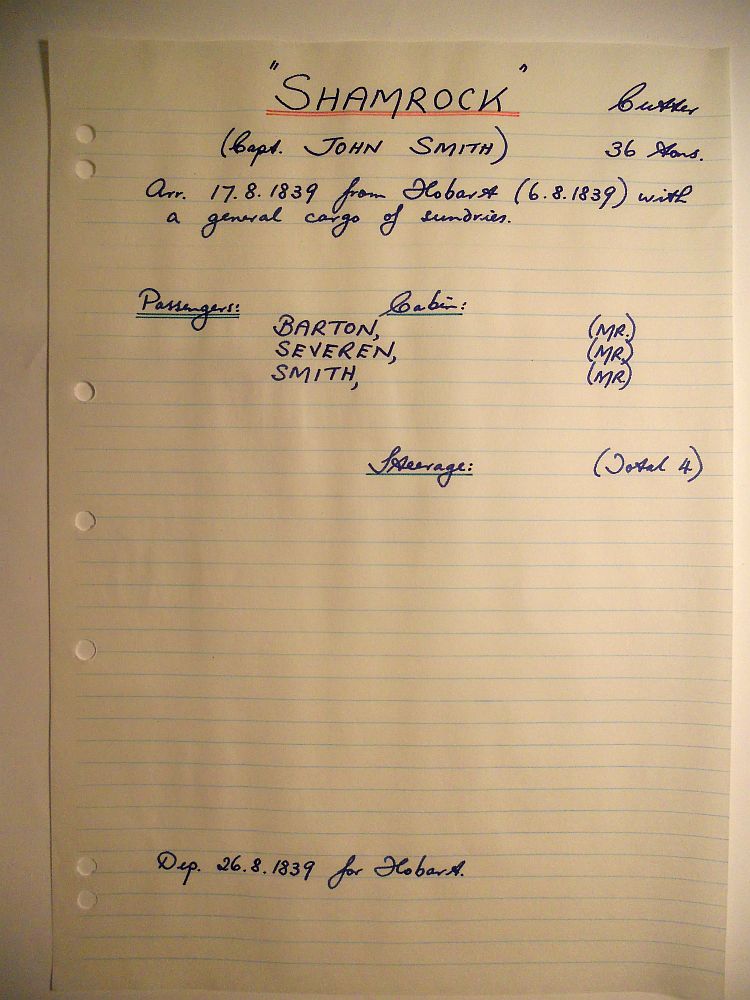 "SHAMROCK" Cutter
(Capt. JOHN SMITH) 36 tons.
Arr. 17.8.1839 from Hobart (6.8.1839) with
a general cargo of sundries.
Passengers: Cabin:
BARTON, (MR.)
SEVEREN, (MR.)
SMITH, (MR)
Steerage: (Total 4)
Dep. 26.8.1839 for Hobart.